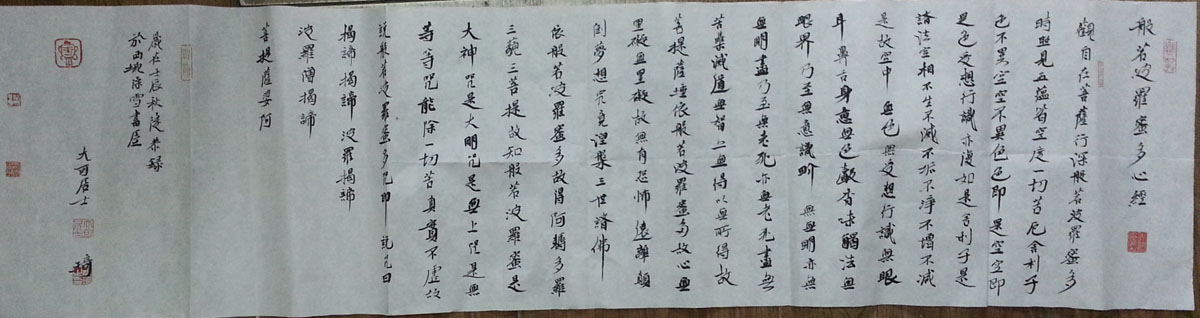 般若波羅蜜多心經
觀自在菩薩行深般若波羅蜜多
時照見五蘊皆空度一切苦厄舍利子
色不異空空不異色色即是空空即
是色受想行識亦復如是舍利子是
諸法空相不生不滅不垢不淨不增不減
是故空中無色無受想行識無眼
耳鼻舌身意無色聲香味觸法無
眼界乃至無意識界無無明亦無
無明盡乃至無老死亦無老死盡無
苦集滅道無智上無得以無所得故
菩提薩埵依般若波羅蜜多故心無
罣礙無罣礙故無有恐怖遠離顛
倒夢想究竟涅槃三世諸佛
依般若波羅蜜多故得阿耨多羅
三藐三菩提故知般若波羅蜜是
大神咒是大明咒是無上咒是無
等等咒能除一切苦真實不虛故
說般若波羅蜜多咒曰說咒曰
揭諦揭諦波羅揭諦
波羅僧揭諦
菩提薩婆訶
歲在壬辰秋陵恭錄
於西坡除雪書屋
九可居士